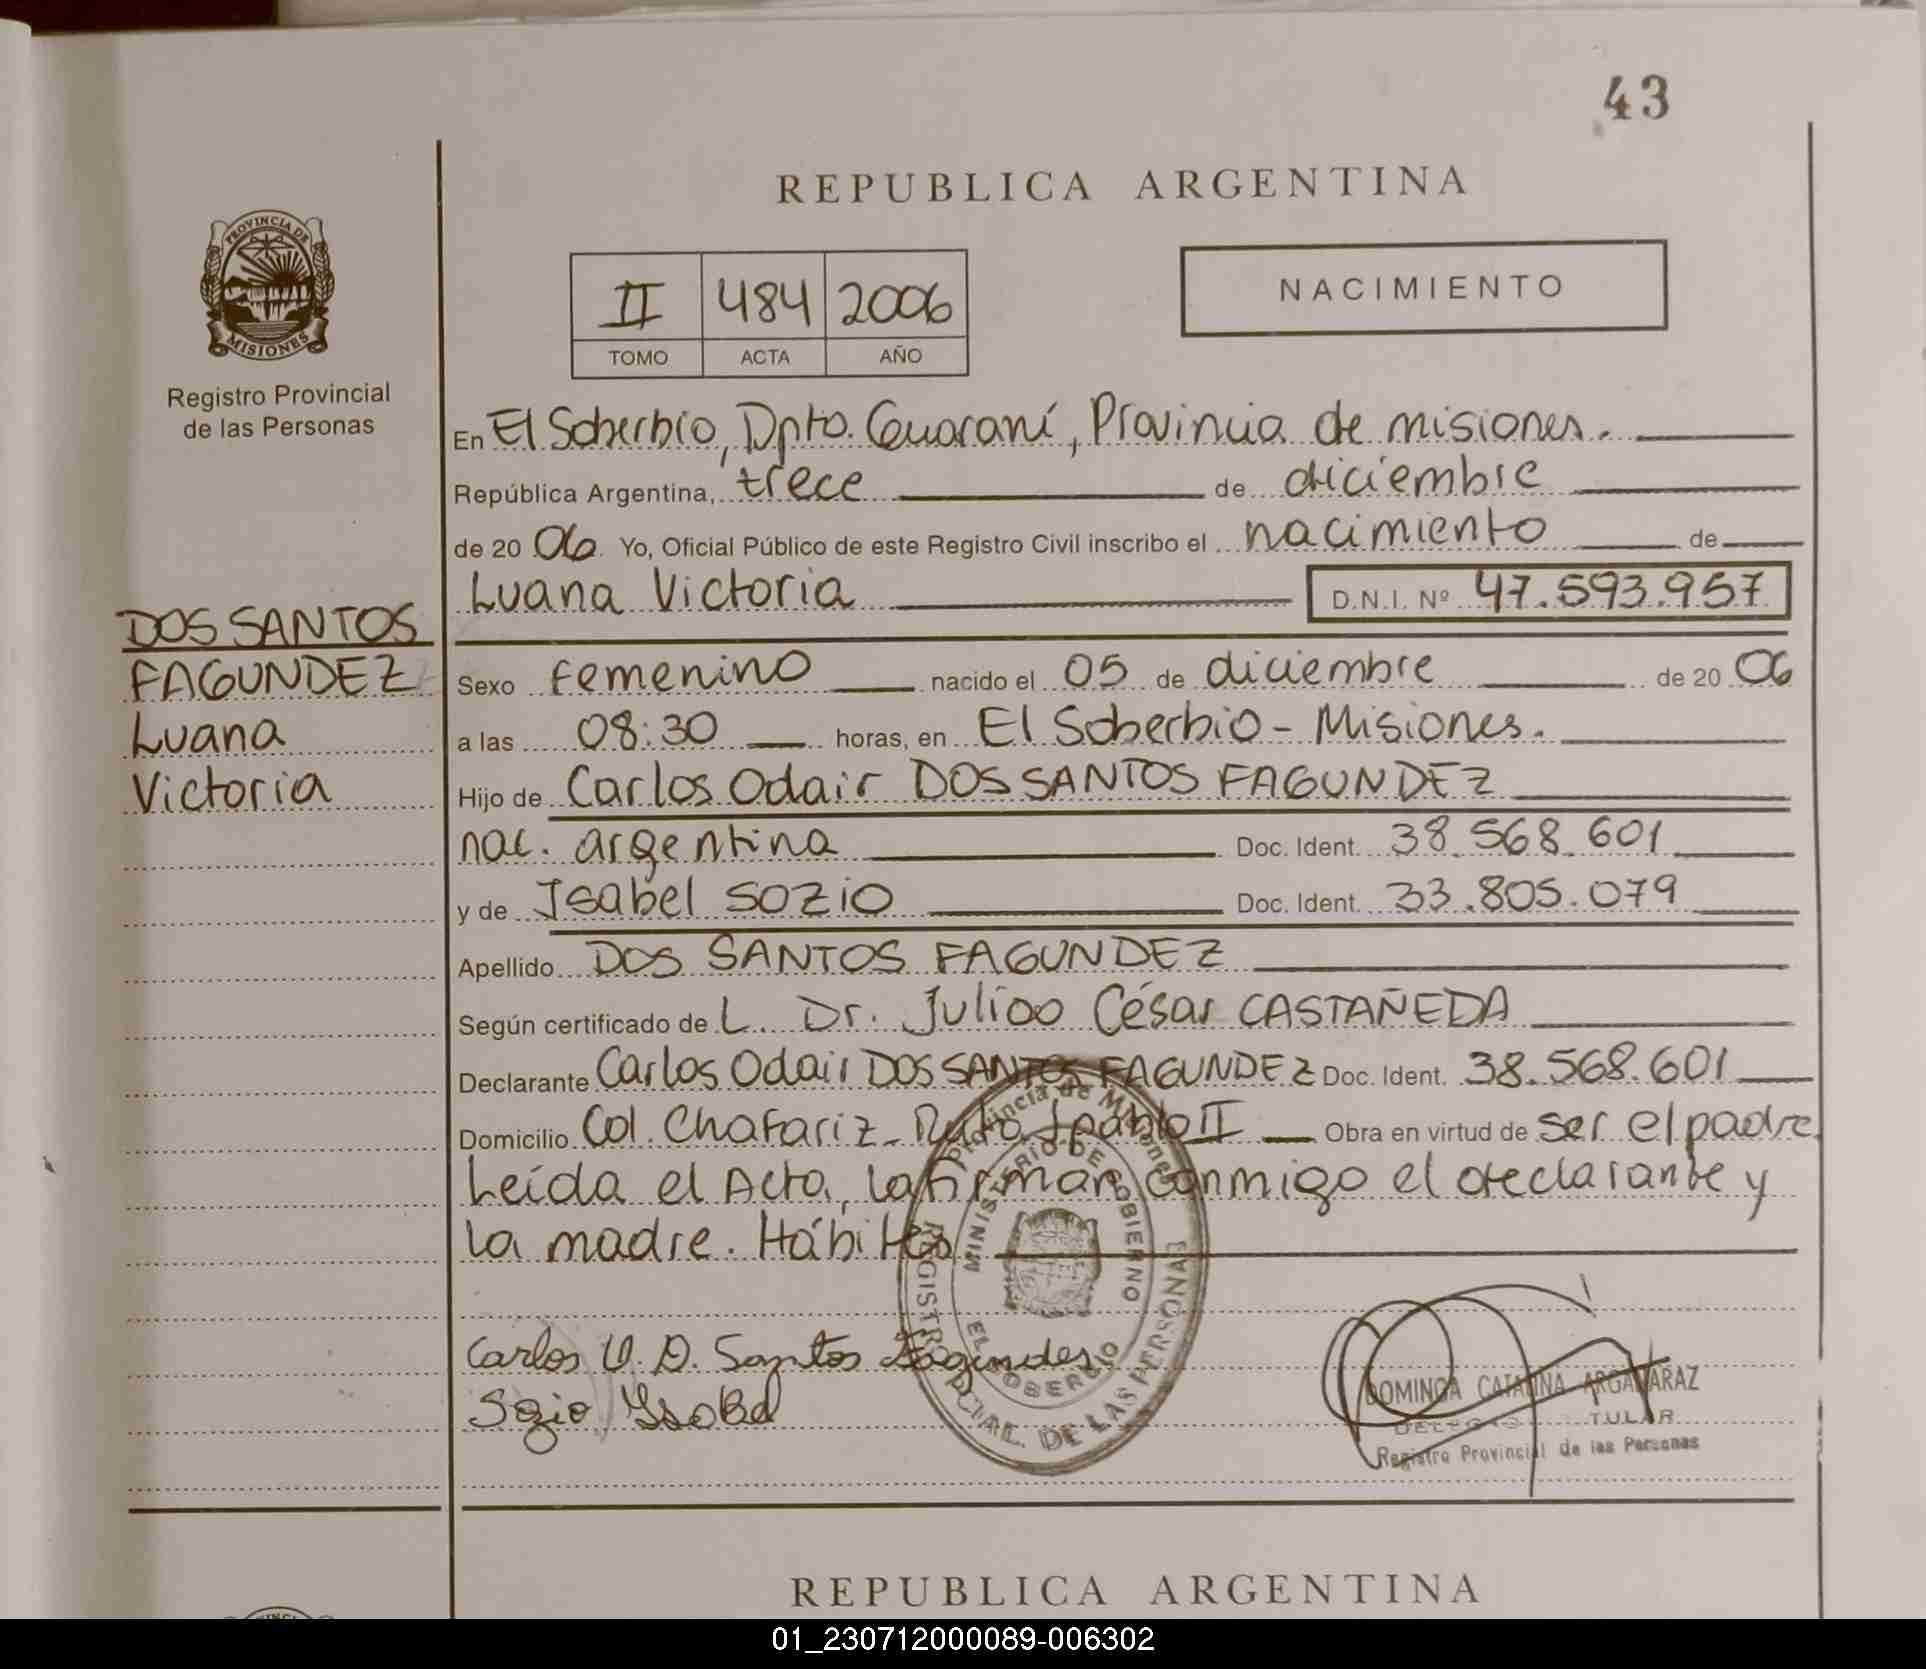 43
REPUBLICA ARGENTINA
PROVINCIA DE
MISIONES
Registro Provincial
de las Personas
II 484 2006
TOMO ACTA AÑO
NACIMIENTO
En El Soberbio, Dpto. Guaraní, Provincia de misiones.
República Argentina, trece de diciembre
de 20 06 Yo, Oficial Público de este Registro Civil inscribo el nacimiento de
Luana Victoria D.N.I. Nº 47.593.957
DOS SANTOS
FAGUNDEZ
Luana
Victoria
Sexo femenino nacido el 05 de diciembre de 20 06
a las 08:30 horas, en El Soberbio - Misiones.
Hijo de Carlos Odair DOS SANTOS FAGUNDEZ
nac. argentina Doc. Ident. 38.568.601
y de Isabel SOZIO Doc. Ident. 33.805.079
Apellido DOS SANTOS FAGUNDEZ
Según certificado de L. Dr. Julioo César CASTAÑEDA
Declarante Carlos Odair DOS SANTOS FAGUNDEZ Doc. Ident. 38.568.601
Domicilio Col. Chafariz - Ruta Jpablo II Obra en virtud de ser el padre
Leída el Acta, la firman conmigo el declarante y
la madre. Hábiles
Provincia de Misiones
MINISTERIO DE GOBIERNO
EL SOBERBIO
REGISTRO PROVINCIAL DE LAS PERSONAS
Carlos O. D. Santos Fagundes
Sozio Ysabel
DOMINGA CATALINA ARGAÑARAZ
TULAR
Registro Provincial de las Personas
REPUBLICA ARGENTINA
01_230712000089-006302